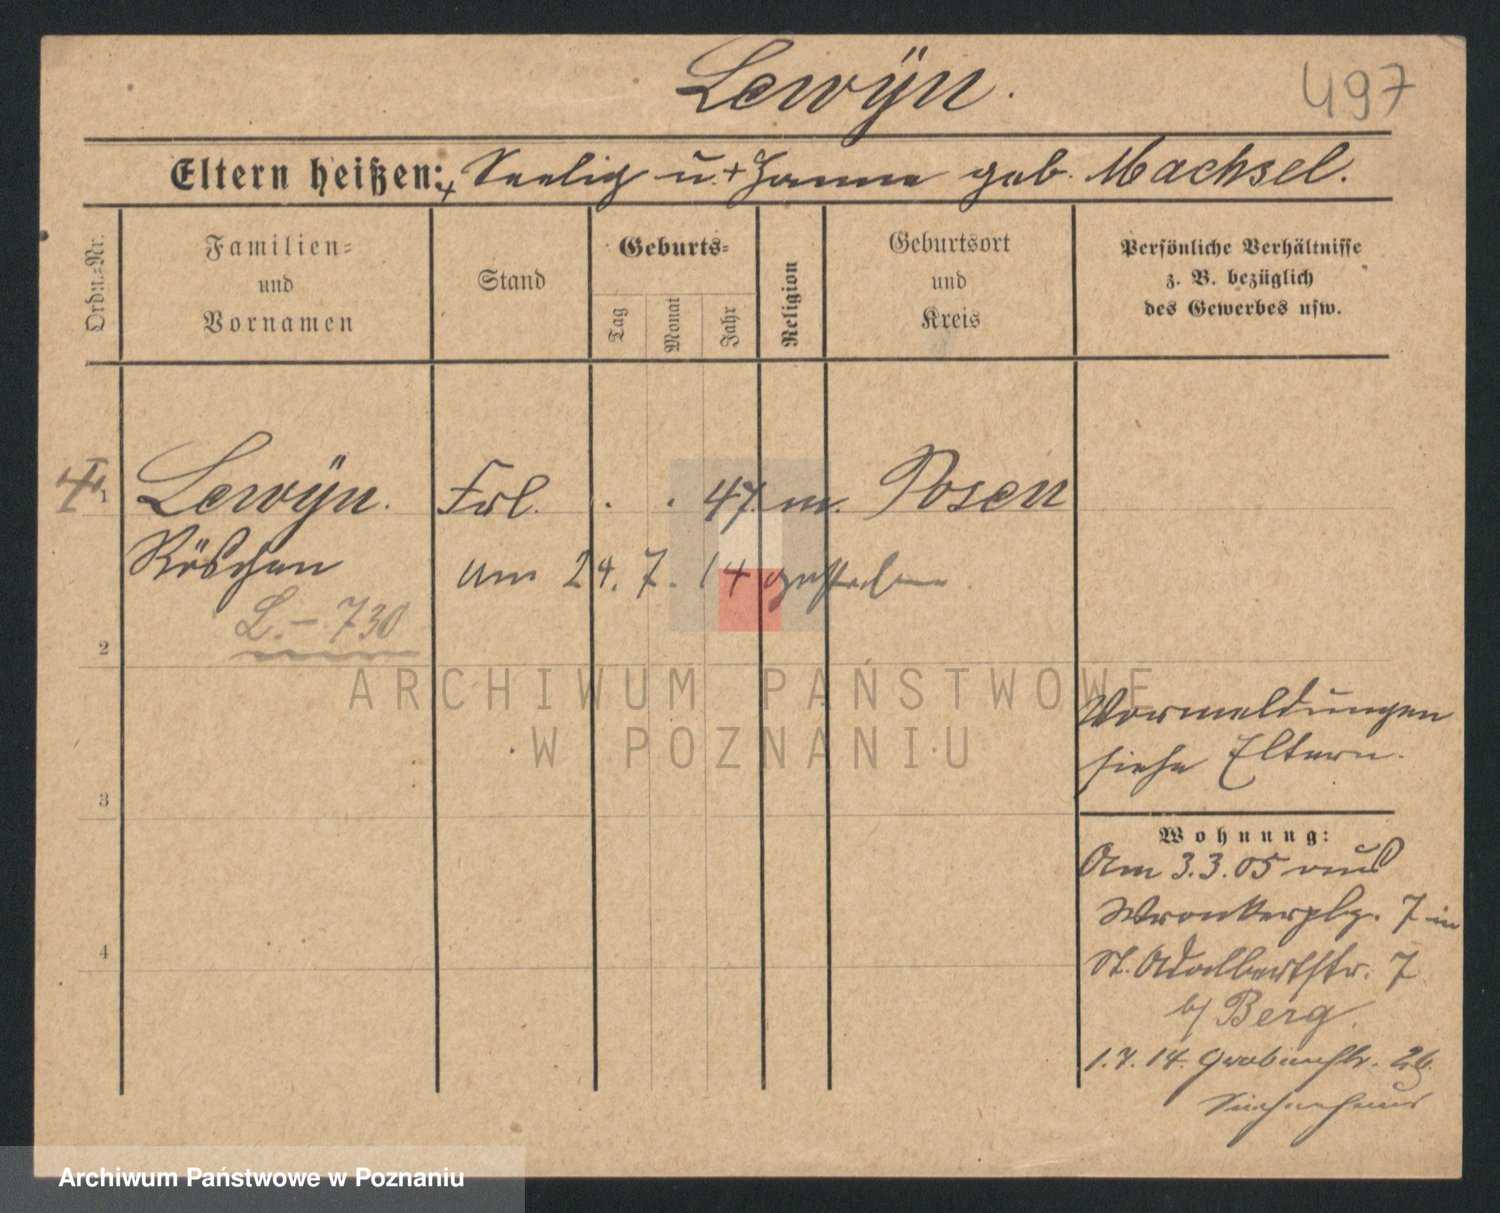 Lewÿn.
497
Eltern heißen: + Seelig u. + Hanne geb. Machsel.
Ordn.=Nr.
Familien=
und
Vornamen
Stand
Geburts=
Tag
Monat
Jahr
Religion
Geburtsort
und
Kreis
Persönliche Verhältnisse
z. B. bezüglich
des Gewerbes usw.
1 Lewÿn. Frl. . . 47. m. Posen
Röschen am 24. 7. 14 gestorben.
L. – 730
2
ARCHIWUM PAŃSTWOWE
W POZNANIU
Vormeldungen
siehe Eltern.
3
Wohnung:
Am 3.3.05 aus
Wronkerplz. 7 in
St. Adalbertstr. 7
b/ Berg.
4
1.7.14. Grabenstr. 26.
Siechenhaus
Archiwum Państwowe w Poznaniu